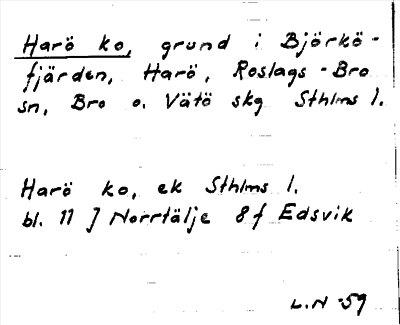 Harö ko, grund i Björkö-
fjärden, Harö, Roslags-Bro
sn, Bro o. Vätö skg Sthlms l.
Harö ko, ek Sthlms l.
bl. 11 J Norrtälje 8f Edsvik
L.N -59